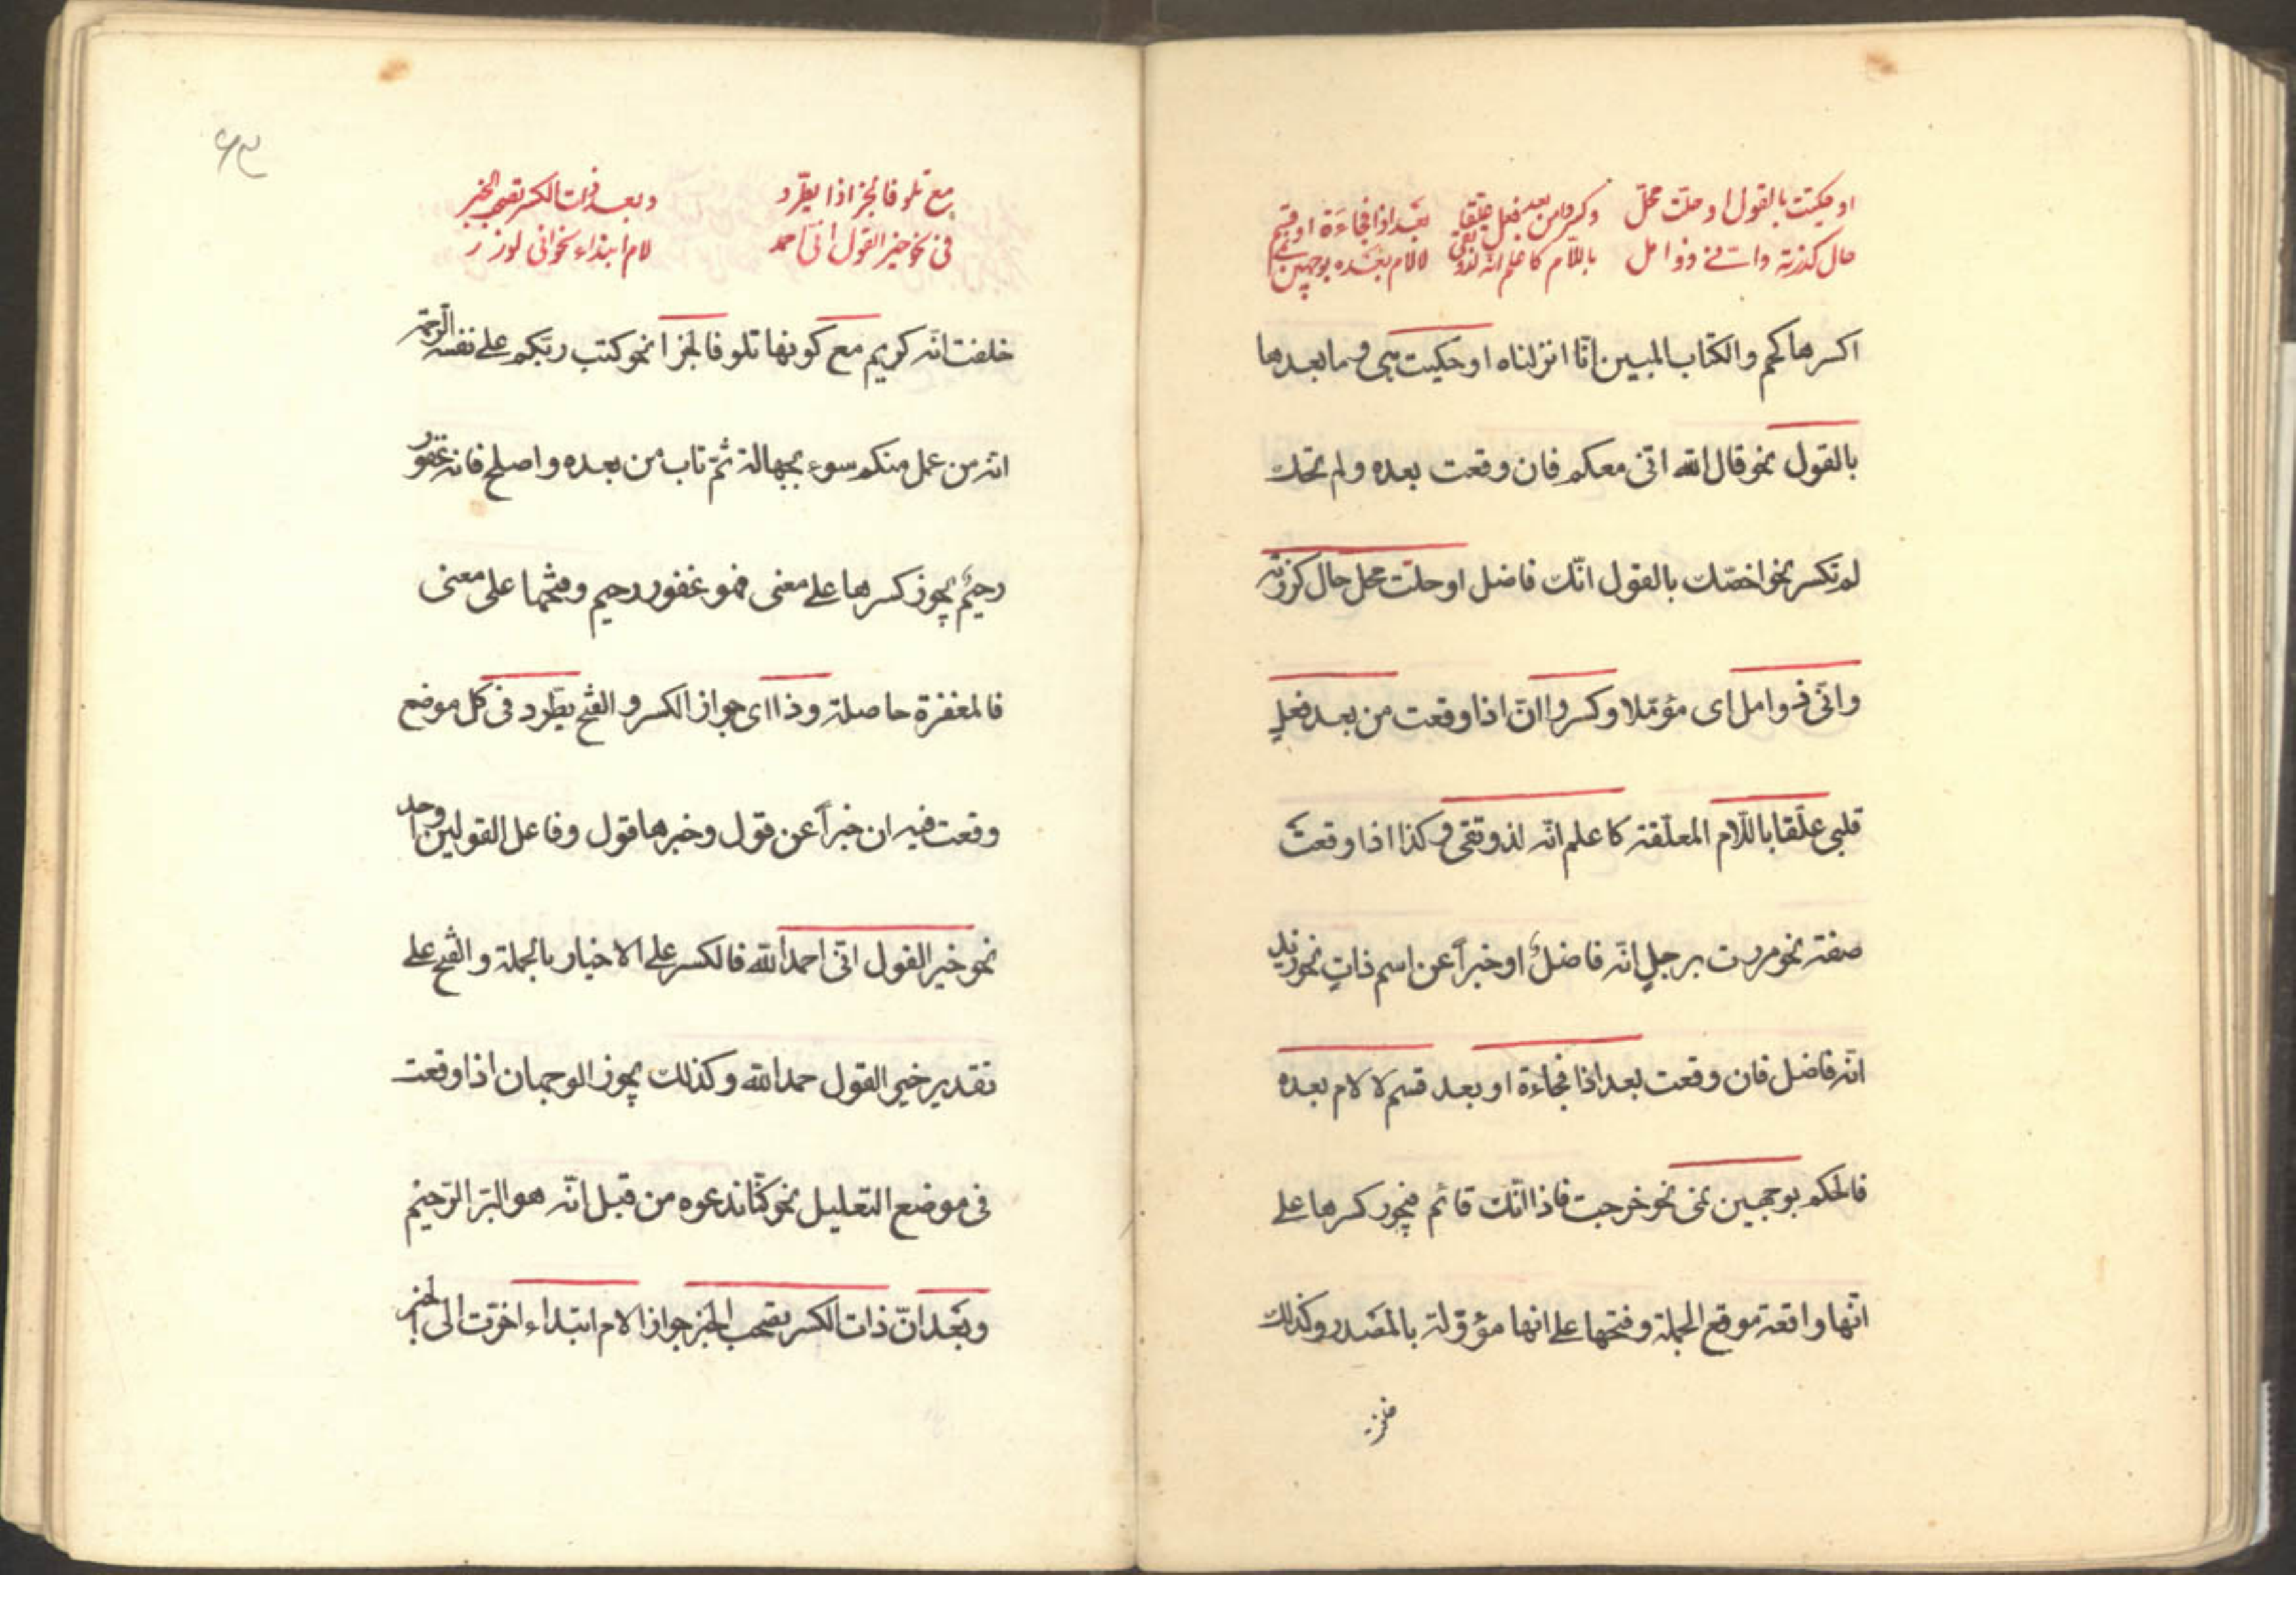 او حكيت بالقول او حلت محل
حال كزرته وانى ذو امل
وكسروا من بعد فعل علقا
باللام كاعلم انه لذو تقى
بعد اذا فجاءة او قسم
لا لام بعده بوجهين نمى
اكسرها كحم والكتاب المبين انّا انزلناه او حكيت هى وما بعدها
بالقول نحو قال الله انى معكم فان وقعت بعده ولم تحك
لم تكسر نحو اخصّك بالقول انّك فاضل او حلّت محل حال كزرته
وانّى ذو امل اى مؤمّلا وكسروا انّ اذا وقعت من بعد فعلٍ
قلبى علّقا باللّام المعلّقة كاعلم انّه لذو تقى وكذا اذا وقعت
صفة نحو مررت برجلٍ انّه فاضلٌ او خبراً عن اسم ذاتٍ نحو زيد
انّه فاضل فان وقعت بعد اذا فجاءة او بعد قسم لا لام بعده
فالحكم بوجهين نمى نحو خرجت فاذا انّك قائم فيجوز كسرها على
انّها واقعة موقع الجملة وفتحها على انها مؤوّلة بالمصدر وكذلك
مع تلو فا الجزا وذا يطّرد
فى نحو خير القول انى احمد
وبعد ذات الكسر تصحب الخبر
لام ابتداء نحو انى لوزر
حلفت انّه كريم مع كونها تلو فا الجزا نحو كتب ربّكم على نفسه الرحمة
انّه من عمل منكم سوء بجهالة ثمّ تاب من بعده واصلح فانه غفور
رحيمٌ يجوز كسرها على معنى فهو غفور رحيم وفتحها على معنى
فالمغفرة حاصلة وذا اى جواز الكسر والفتح يطّرد فى كل موضع
وقعت فيه ان خبراً عن قول وخبرها قول وفاعل القولين واحد
نحو خير القول انّى احمد الله فالكسر على الاخبار بالجملة والفتح على
تقدير خير القول حمد الله وكذلك يجوز الوجهان اذا وقعت
فى موضع التعليل نحو كنّا ندعوه من قبل انّه هو البرّ الرّحيم
وبعد انّ ذات الكسر تصحب الخبر جوازا لام ابتداء اخرّت الى الخبر